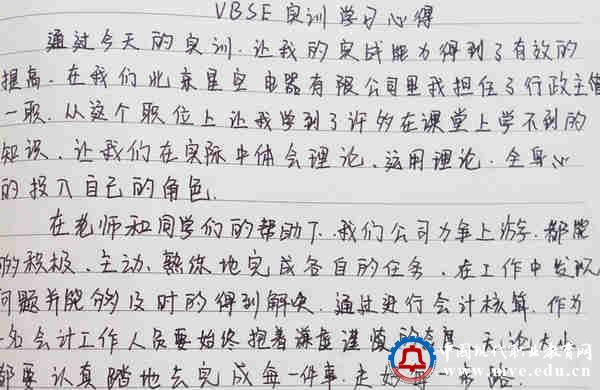 VBSE实训学习心得
通过今天的实训.让我的实战能力得到了有效的
提高.在我们北京星空电器有限公司里我担任了行政主管
一职.从这个职位上让我学到了许多在课堂上学不到的
知识.让我们在实际中体会理论、运用理论.全身心
的投入自己的角色.
在老师和同学们的帮助下.我们公司力争上游.都能
的积极、主动、熟练地完成各自的任务.在工作中发现
问题并能够及时的得到解决.通过进行会计核算.作为
一名会计工作人员要始终抱着谦虚谨慎的 无论大小
都要认真踏地去完成每一件事.走好 一步路.
中国现代职业教育网
www.mve.edu.cn